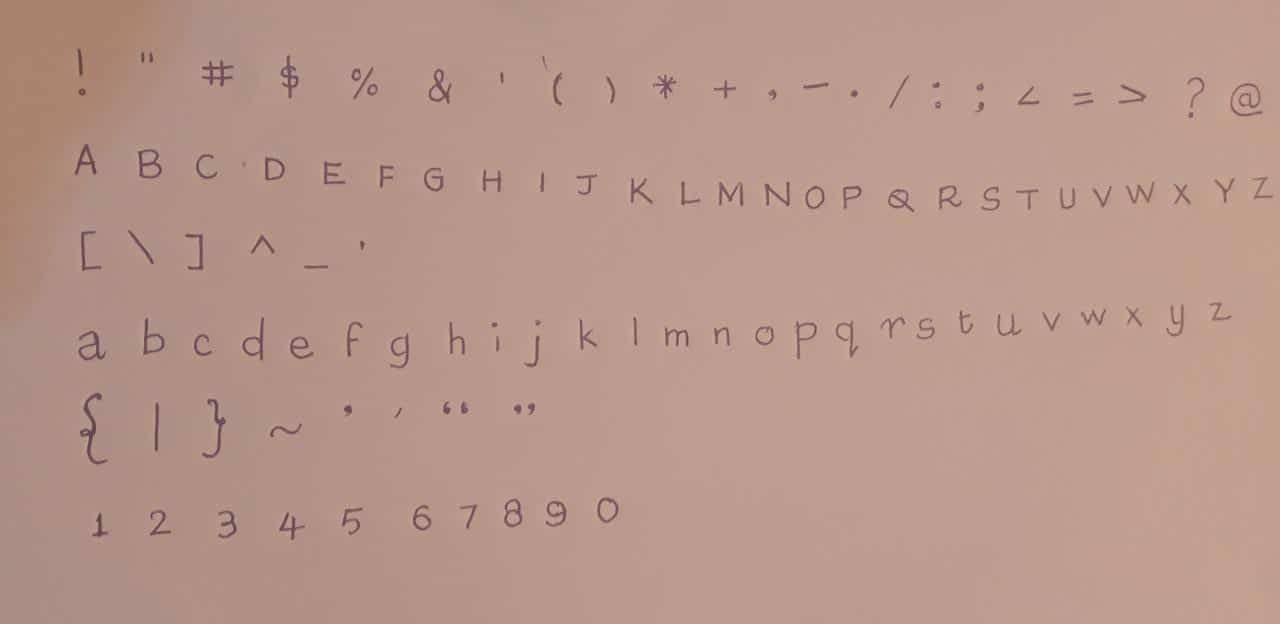 ! " # $ % & ' ( ) * + , - . / : ; < = > ? @
A B C D E F G H I J K L M N O P Q R S T U V W X Y Z
[ \ ] ^ _ '
a b c d e f g h i j k l m n o p q r s t u v w x y z
{ | } ~ ’ ′ “ ”
1 2 3 4 5 6 7 8 9 0